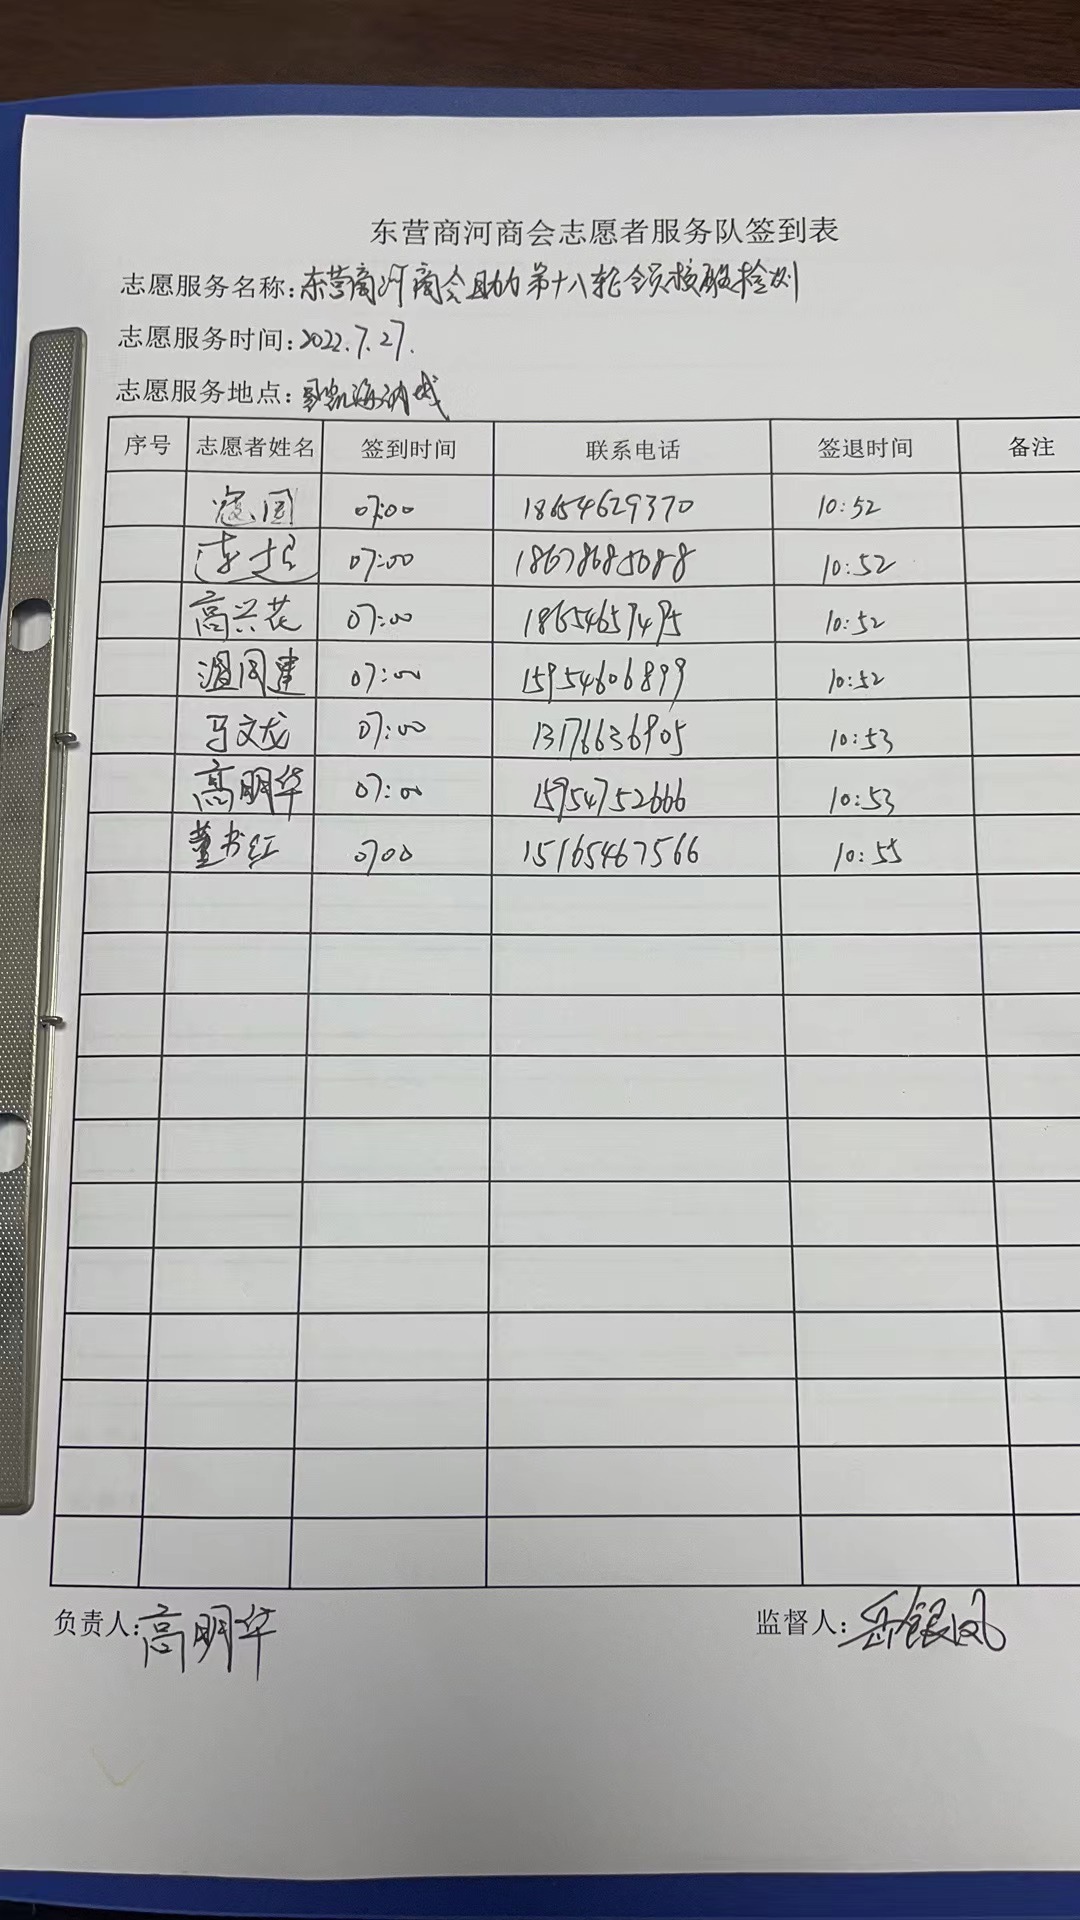 东营商河商会志愿者服务队签到表
志愿服务名称:东营商河商会助力第十八轮全员核酸检测
志愿服务时间:2022.7.27.
志愿服务地点:
序号 志愿者姓名 签到时间 联系电话 签退时间 备注
寇国 07:00 18654629370 10:52
07:00 18678685088 10:52
高兴花 07:00 18654657495 10:52
温同建 07:00 15954606899 10:52
马文龙 07:00 13176636905 10:53
高明华 07:00 15954752666 10:53
董书红 0700 15165467566 10:55
负责人:高明华 监督人:岳银凤